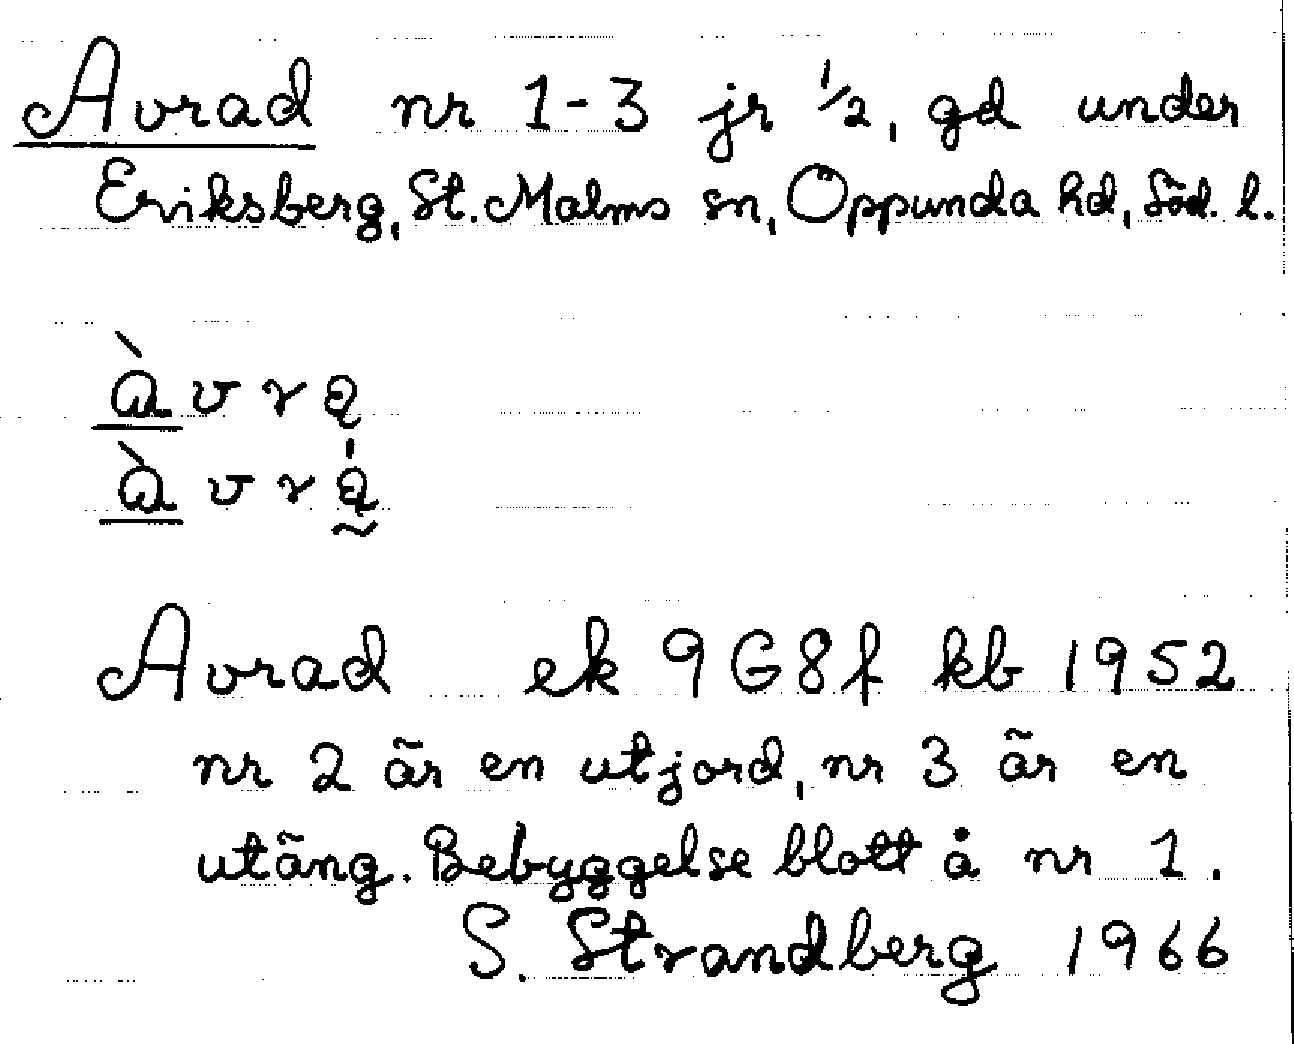 Avrad nr 1-3 jr 1/2, gd under
Eriksberg, St. Malms sn, Öppunda hd, Söd. l.
Avrad ek 9G8f kb 1952
nr 2 är en utjord, nr 3 är en
utäng. Bebyggelse blott å nr 1.
S. Strandberg 1966